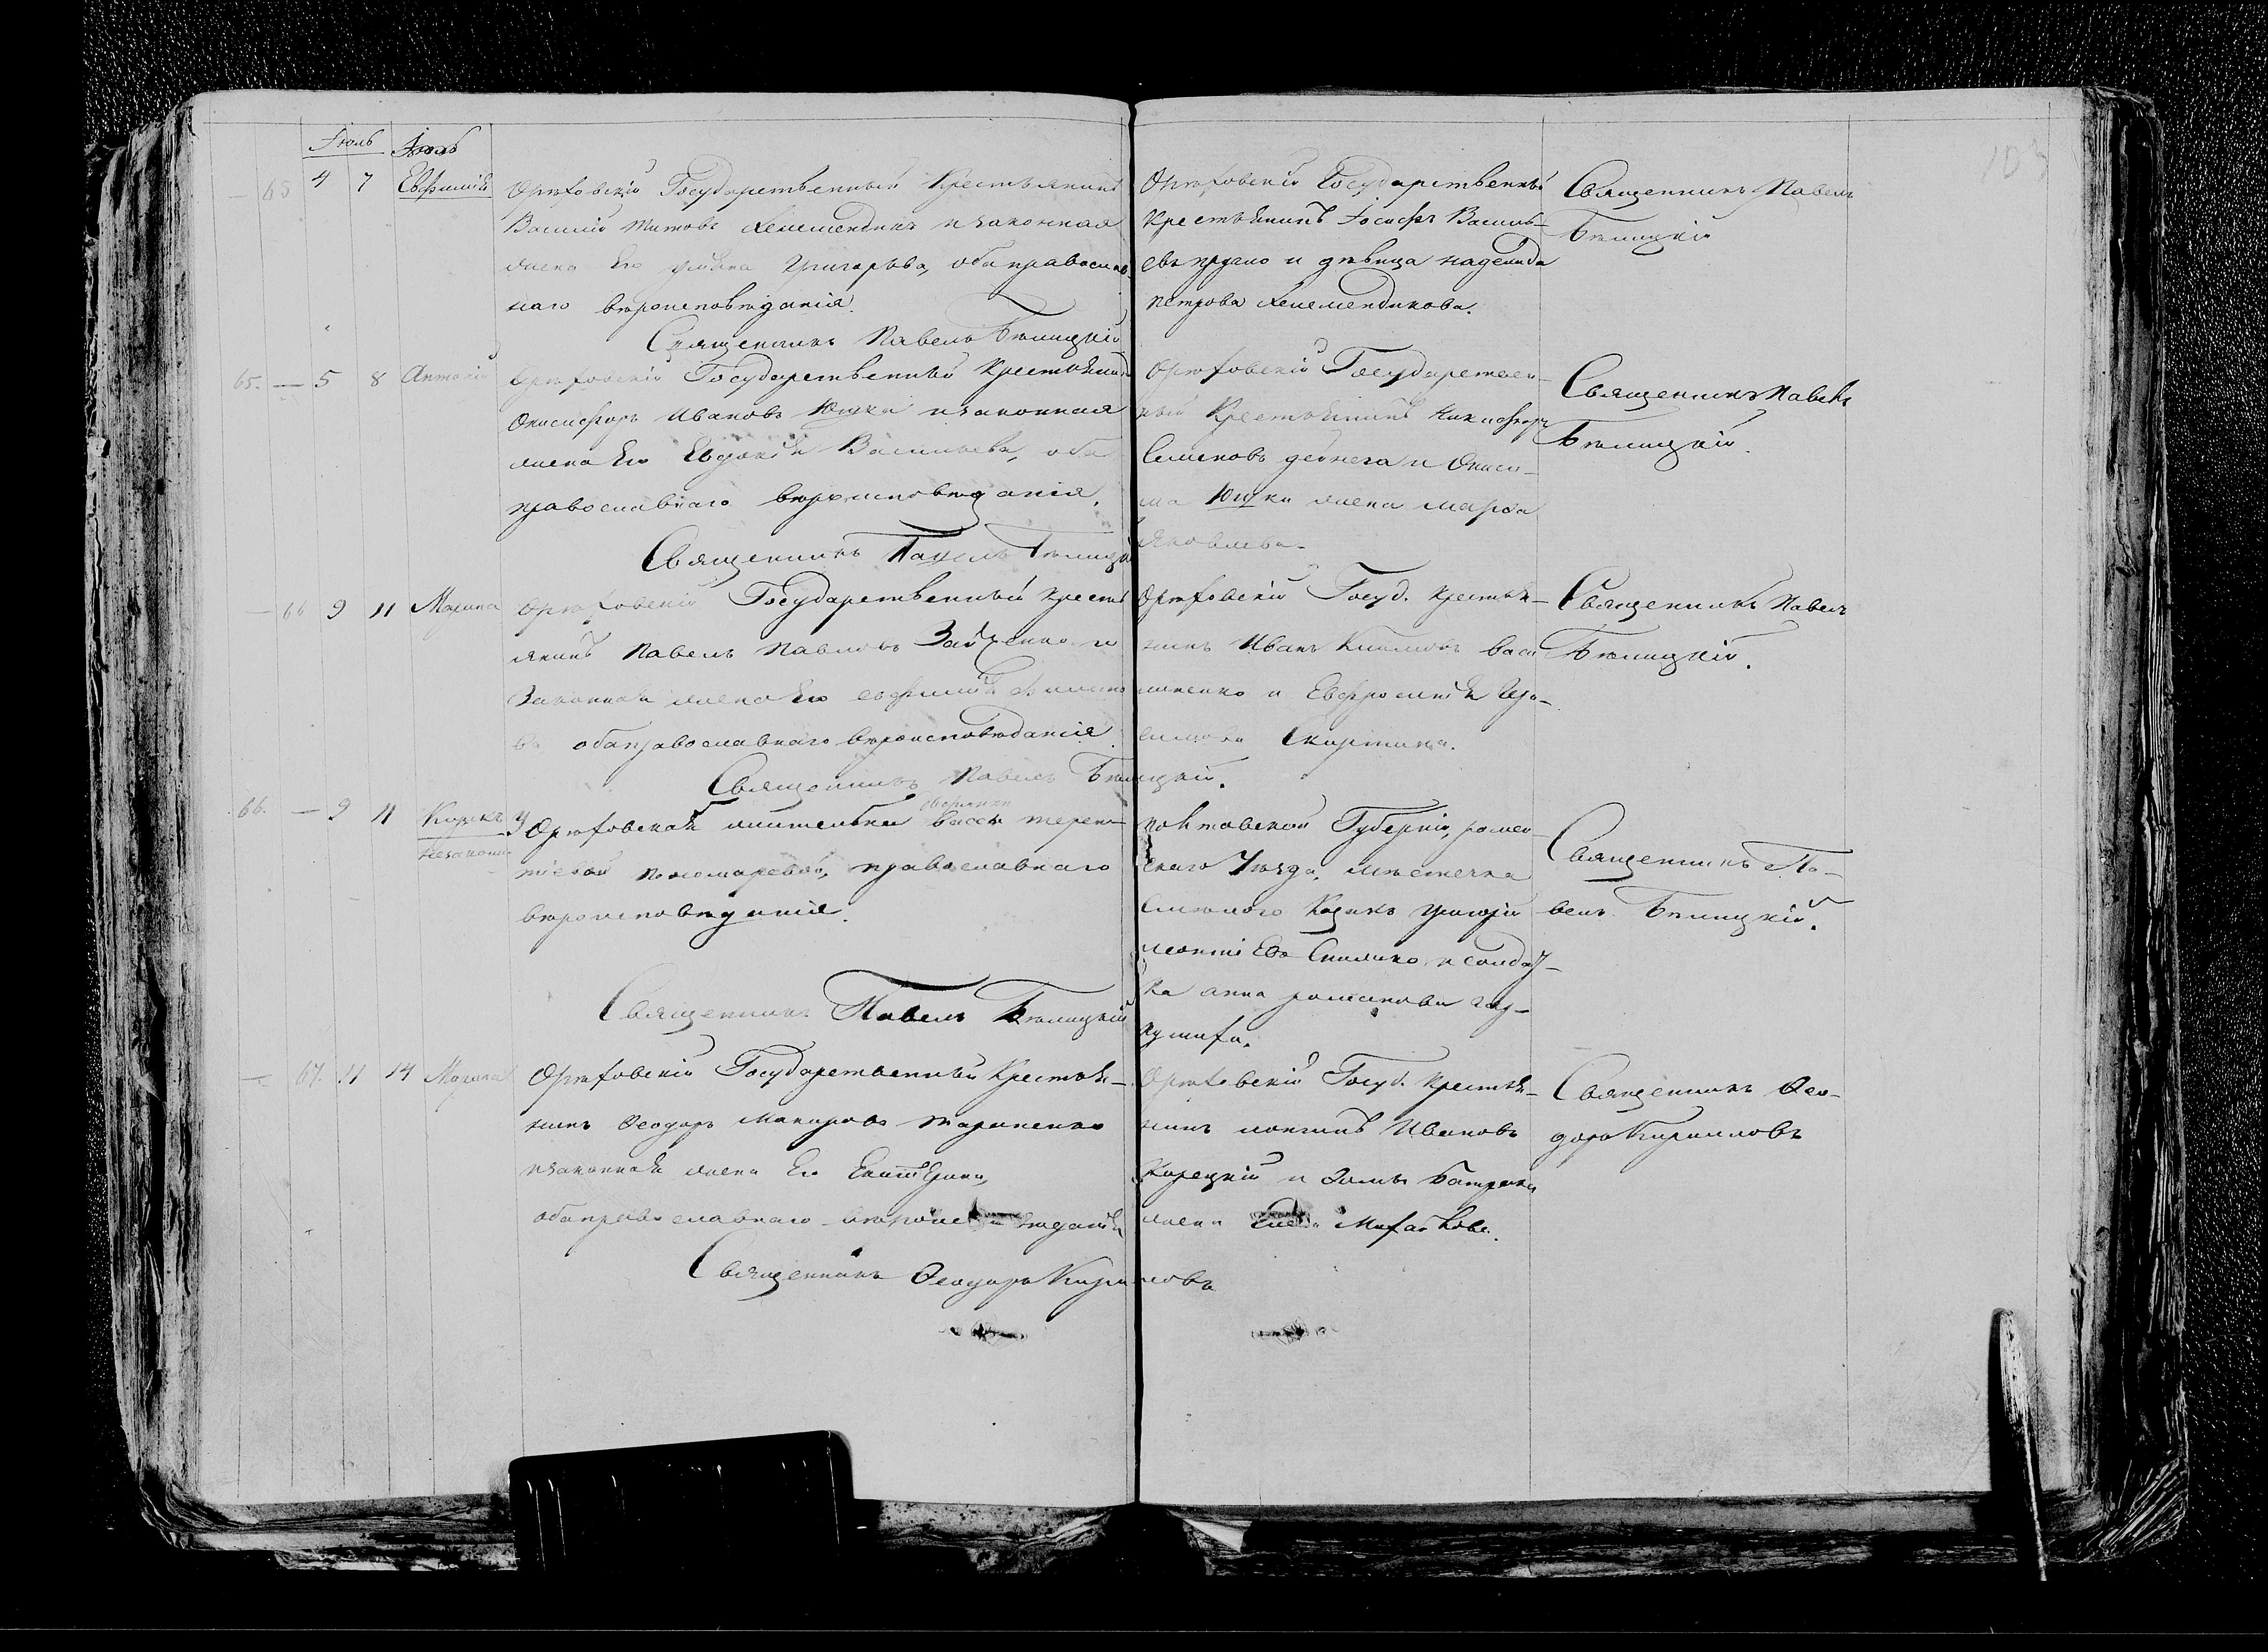 Іюль Іюль
103
65 4 7 Евфимій Орѣховскій Государственный Крестьянинъ
Василій Титовъ и законная
жена Его Григорьева, оба православ-
наго вѣроисповѣданія.
Священникъ Павелъ Бѣлицкій
Орѣховскій Государственный
Крестьянинъ Іосифъ Василь-
евъ и дѣвица Надежда
Петрова
Священникъ Павелъ
Бѣлицкій
65. — 5 8 Антоній Орѣховскій Государственный Крестьянинъ
Онисифоръ Ивановъ Юшка и законная
жена Его Евдокія Васильева, оба
православнаго вѣроисповѣданія.
Священникъ Павелъ Бѣлицкій
Орѣховскій Государствен-
ный Крестьянинъ Никифоръ
Семеновъ Дейнега и Ониси-
ма Юшки жена Марфа
Яковлева.
Священникъ Павелъ
Бѣлицкій.
— 66 9 11 Марина Орѣховскій Государственный Кресть
янинъ Павелъ Павловъ и
Законная жена Его Евфимія
ва оба православнаго вѣроисповѣданія.
Священникъ Павелъ Бѣлицкій.
Орѣховскій Госуд. Крестья-
нинъ Иванъ Васи
ленко и Евфросинія
Священникъ Павелъ
Бѣлицкій.
66. — 9 11 Кирикъ У Орѣховской жительки Вассы Терен-
незаконн
тіевой Пономаревой, православнаго
вѣроисповѣданія.
Священникъ Павелъ Бѣлицкій
Полтавской Губерніи, Ромен-
скаго Уѣзда, мѣстечка
Смѣлого Козакъ Григорій
Леонтіевъ и солдат-
ка Анна Романова
Священникъ Па-
велъ Бѣлицкій.
— 67. 11 14 Марина Орѣховскій Государственный Крестья-
нинъ Ѳеодоръ Макаровъ Тараненко
и законная жена Его Екатерина,
оба православнаго вѣроисповѣданія
Священникъ Ѳеодоръ Кирилловъ
Орѣховскій Госуд. Крестья-
нинъ Лонгинъ Ивановъ
Корецкій и Ѳомы Батрака
жена Михайлова.
Священникъ Ѳео-
доръ Кирилловъ